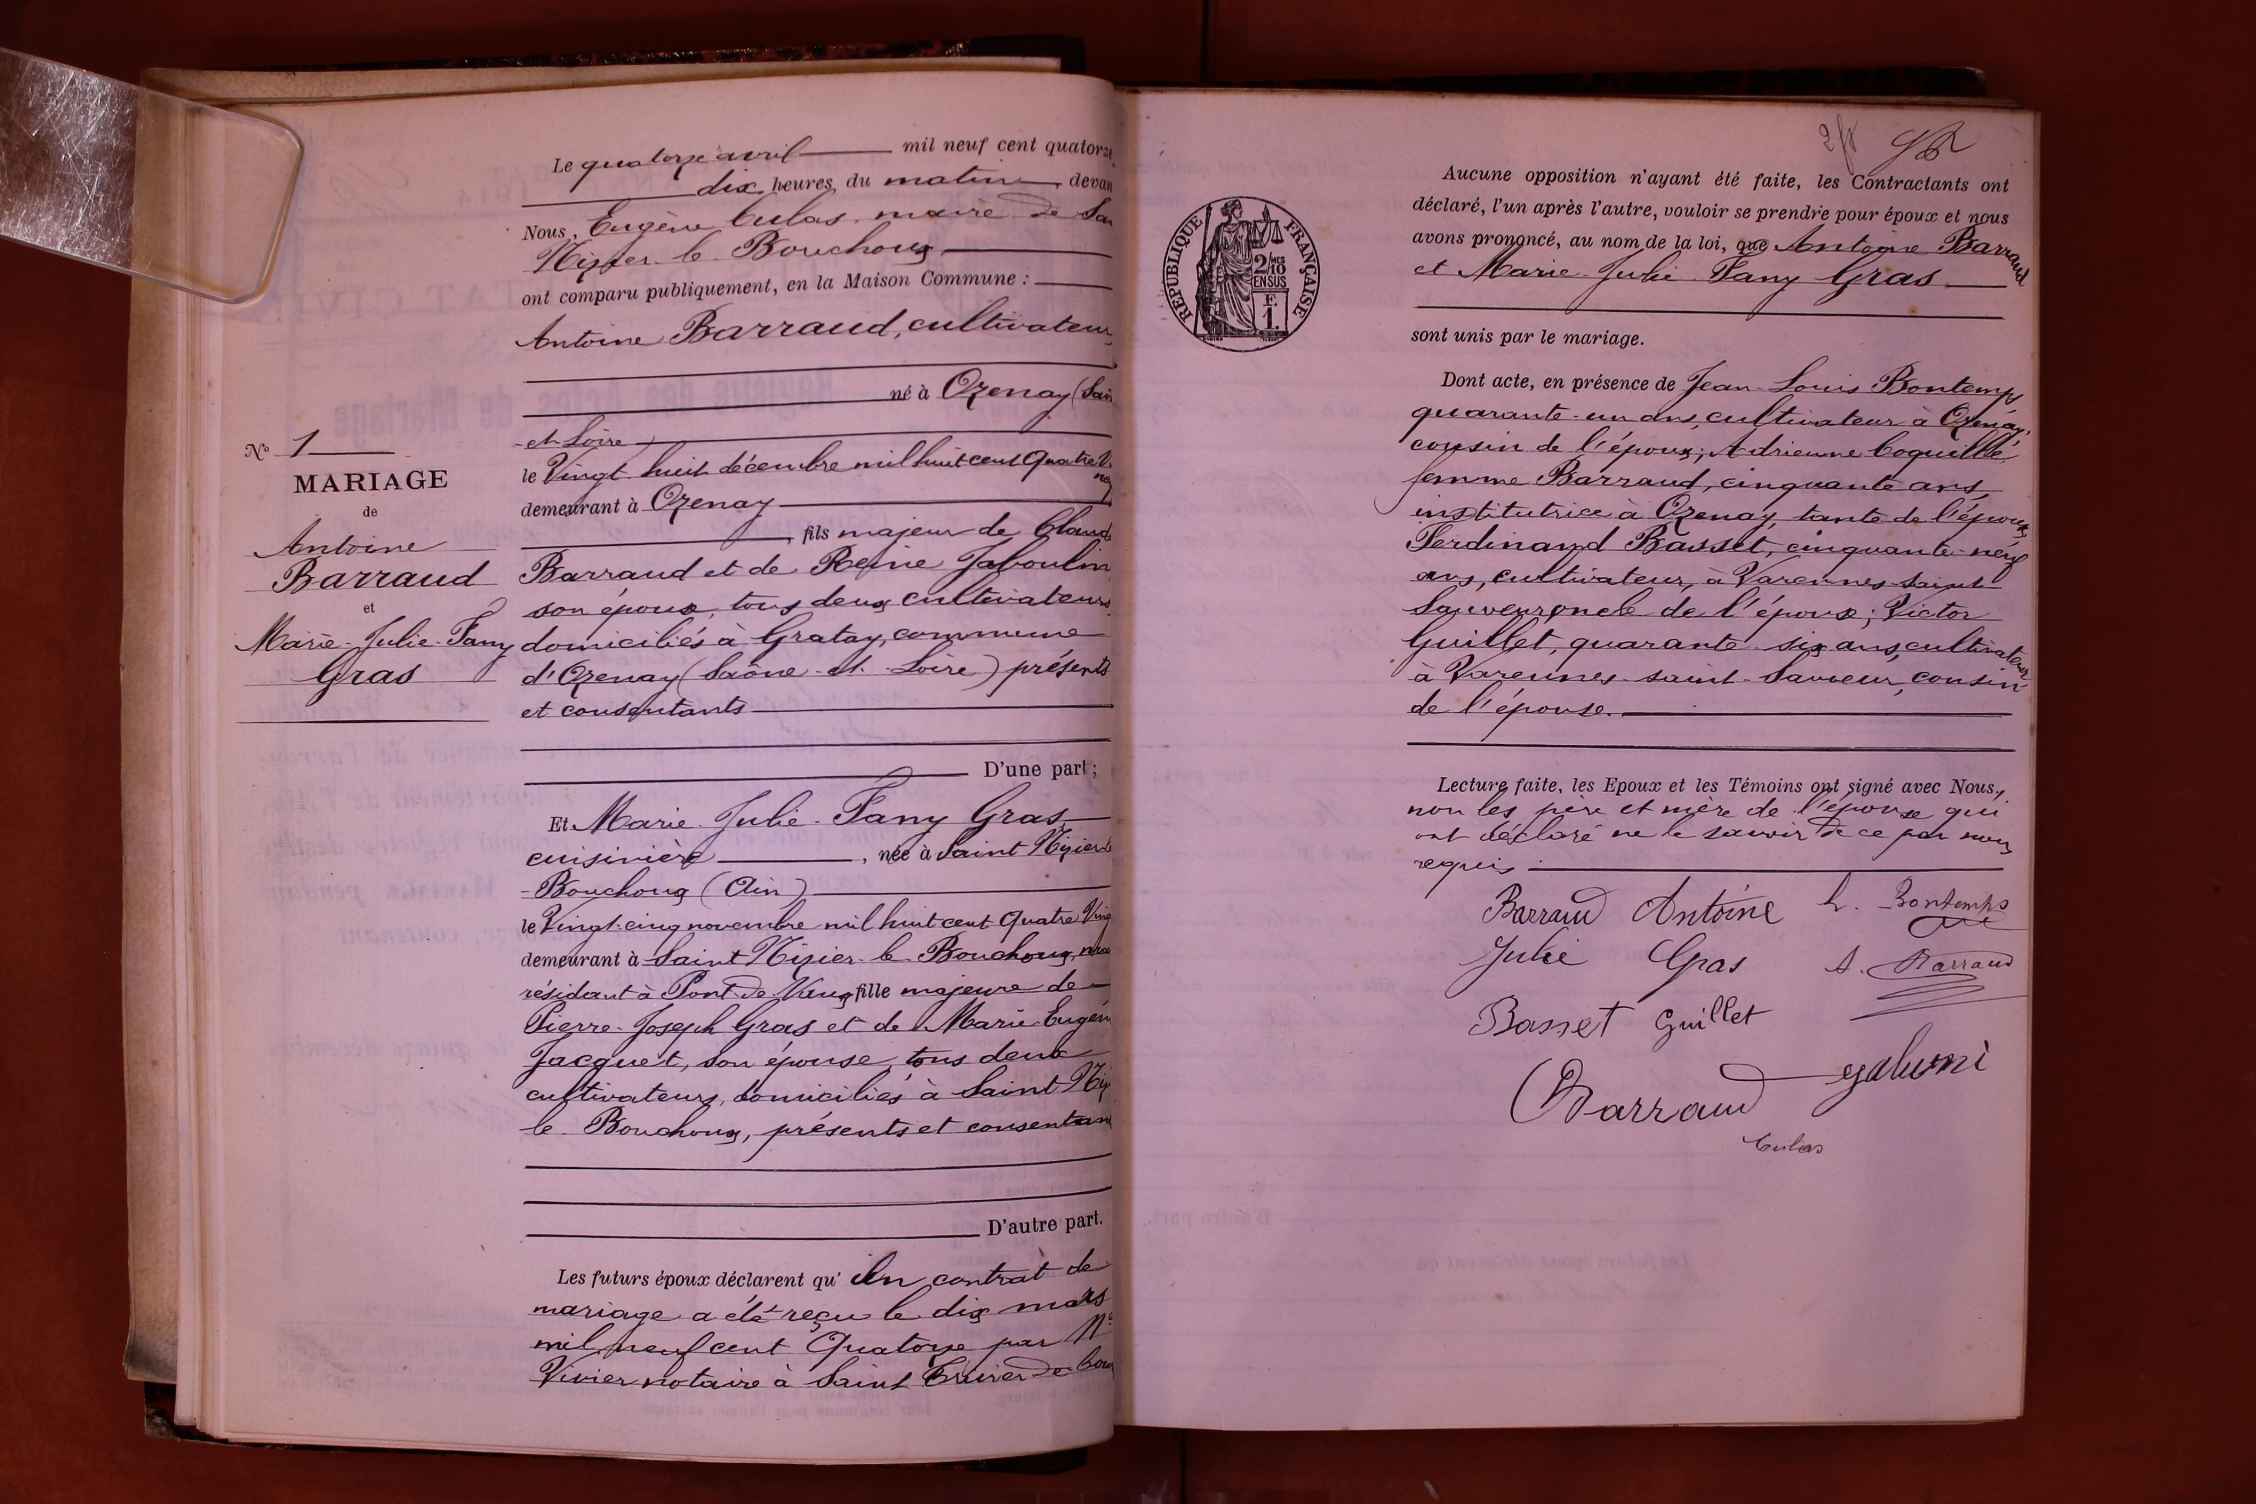 Le quatorze avril mil neuf cent quatorze
dix heures du matin, devan
Nous, Eugène Culas maire de Sai
Nizier le Bouchoux
ont comparu publiquement, en la Maison Commune :
Antoine Barraud, cultivateur
né à Ozenay (Saôn
et Loire)
le Vingt huit décembre mil huit cent quatre V
demeurant à Ozenay
, fils majeur de Claude
Barraud et de Reine Jaboulin
son épouse, tous deux cultivateurs
domiciliés à Gratay, commune
d'Ozenay (Saône et Loire) présents
et consentants
D'une part ;
Et Marie Julie Fany Gras
cuisinière, née à Saint Nizier le
Bouchoux (Ain)
le Vingt-cinq novembre mil huit cent quatre Ving
demeurant à Saint Nizier le Bouchoux,
résidant à Pont de Vaux fille majeure de
Pierre Joseph Gras et de Marie Eugéni
Jacquet, son épouse, tous deux
cultivateurs, domiciliés à Saint Nizi
le Bouchoux, présents et consentan
D'autre part.
Les futurs époux déclarent qu' un contrat de
mariage a été reçu le dix mars
mil neuf cent quatorze par Me
Vivier notaire à Saint Trivier de Cour
No 1
MARIAGE
de
Antoine
Barraud
et
Marie-Julie-Fany
Gras
2/8
RÉPUBLIQUE FRANÇAISE
2/10
EN SUS
F.
1.
Aucune opposition n'ayant été faite, les Contractants ont
déclaré, l'un après l'autre, vouloir se prendre pour époux et nous
avons prononcé, au nom de la loi, que Antoine Barraud
et Marie Julie Fany Gras
sont unis par le mariage.
Dont acte, en présence de Jean Louis Bontemps
quarante-un ans, cultivateur à Ozenay,
cousin de l'époux; Adrienne Coquille
femme Barraud, cinquante ans,
institutrice à Ozenay, tante de l'époux,
Ferdinand Basset, cinquante-neuf
ans, cultivateur, à Varennes-saint
Sauveur, oncle de l'épouse; Victor
Guillet, quarante-six ans, cultivateur
à Varennes-saint-Sauveur, cousin
de l'épouse.
Lecture faite, les Epoux et les Témoins ont signé avec Nous,
non les père et mère de l'épouse qui
ont déclaré ne le savoir de ce par nous
requis.
Barraud Antoine L. Bontemps
Julie Gras A. Barraud
Basset Guillet
Barraud
Culas